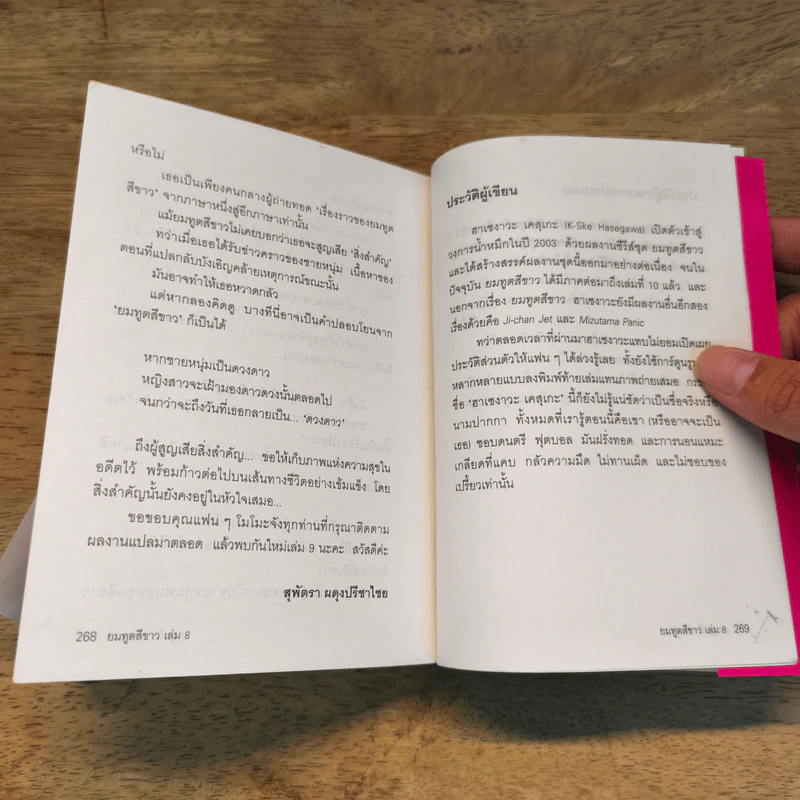 หรือไม่
เธอเป็นเพียงคนกลางผู้ถ่ายทอด ‘เรื่องราวของยมทูต
สีขาว’ จากภาษาหนึ่งสู่อีกภาษาเท่านั้น
แม้ยมทูตสีขาวไม่เคยบอกว่าเธอจะสูญเสีย ‘สิ่งสำคัญ’
ทว่าเมื่อเธอได้รับข่าวคราวของชายหนุ่ม เนื้อหาของ
ตอนที่แปลกลับบังเอิญคล้ายเหตุการณ์ขณะนั้น
มันอาจทำให้เธอหวาดกลัว
แต่หากลองคิดดู บางทีนี่อาจเป็นคำปลอบโยนจาก
‘ยมทูตสีขาว’ ก็เป็นได้
หากชายหนุ่มเป็นดวงดาว
หญิงสาวจะเฝ้ามองดาวดวงนั้นตลอดไป
จนกว่าจะถึงวันที่เธอกลายเป็น... ‘ดวงดาว’
ถึงผู้สูญเสียสิ่งสำคัญ... ขอให้เก็บภาพแห่งความสุขใน
อดีตไว้ พร้อมก้าวต่อไปบนเส้นทางชีวิตอย่างเข้มแข็ง โดย
สิ่งสำคัญนั้นยังคงอยู่ในหัวใจเสมอ...
ขอขอบคุณแฟน ๆ โมโมะจังทุกท่านที่กรุณาติดตาม
ผลงานแปลมาตลอด แล้วพบกันใหม่เล่ม 9 นะคะ สวัสดีค่ะ
สุพัตรา ผดุงปรีชาไชย
268 ยมทูตสีขาว เล่ม 8
ประวัติผู้เขียน
ฮาเซงาวะ เคสุเกะ (K-Ske Hasegawa) เปิดตัวเข้าสู่
วงการน้ำหมึกในปี 2003 ด้วยผลงานซีรีส์ชุด ยมทูตสีขาว
และได้สร้างสรรค์ผลงานชุดนี้ออกมาอย่างต่อเนื่อง จนใน
ปัจจุบัน ยมทูตสีขาว ได้มีภาคต่อมาถึงเล่มที่ 10 แล้ว และ
นอกจากเรื่อง ยมทูตสีขาว ฮาเซงาวะยังมีผลงานอื่นอีกสอง
เรื่องด้วยคือ Ji-chan Jet และ Mizutama Panic
ทว่าตลอดเวลาที่ผ่านมาฮาเซงาวะแทบไม่ยอมเปิดเผย
ประวัติส่วนตัวให้แฟน ๆ ได้ล่วงรู้เลย ทั้งยังใช้การ์ตูน
หลากหลายแบบลงพิมพ์ท้ายเล่มแทนภาพถ่ายเสมอ
ชื่อ ‘ฮาเซงาวะ เคสุเกะ’ นี้ก็ยังไม่รู้แน่ชัดว่าเป็นชื่อจริงหรือ
นามปากกา ทั้งหมดที่เรารู้ตอนนี้คือเขา (หรืออาจจะเป็น
เธอ) ชอบดนตรี ฟุตบอล มันฝรั่งทอด และการนอนแหมะ
เกลียดที่แคบ กลัวความมืด ไม่ทานเผ็ด และไม่ชอบของ
เปรี้ยวเท่านั้น
ยมทูตสีขาว เล่ม 8 269